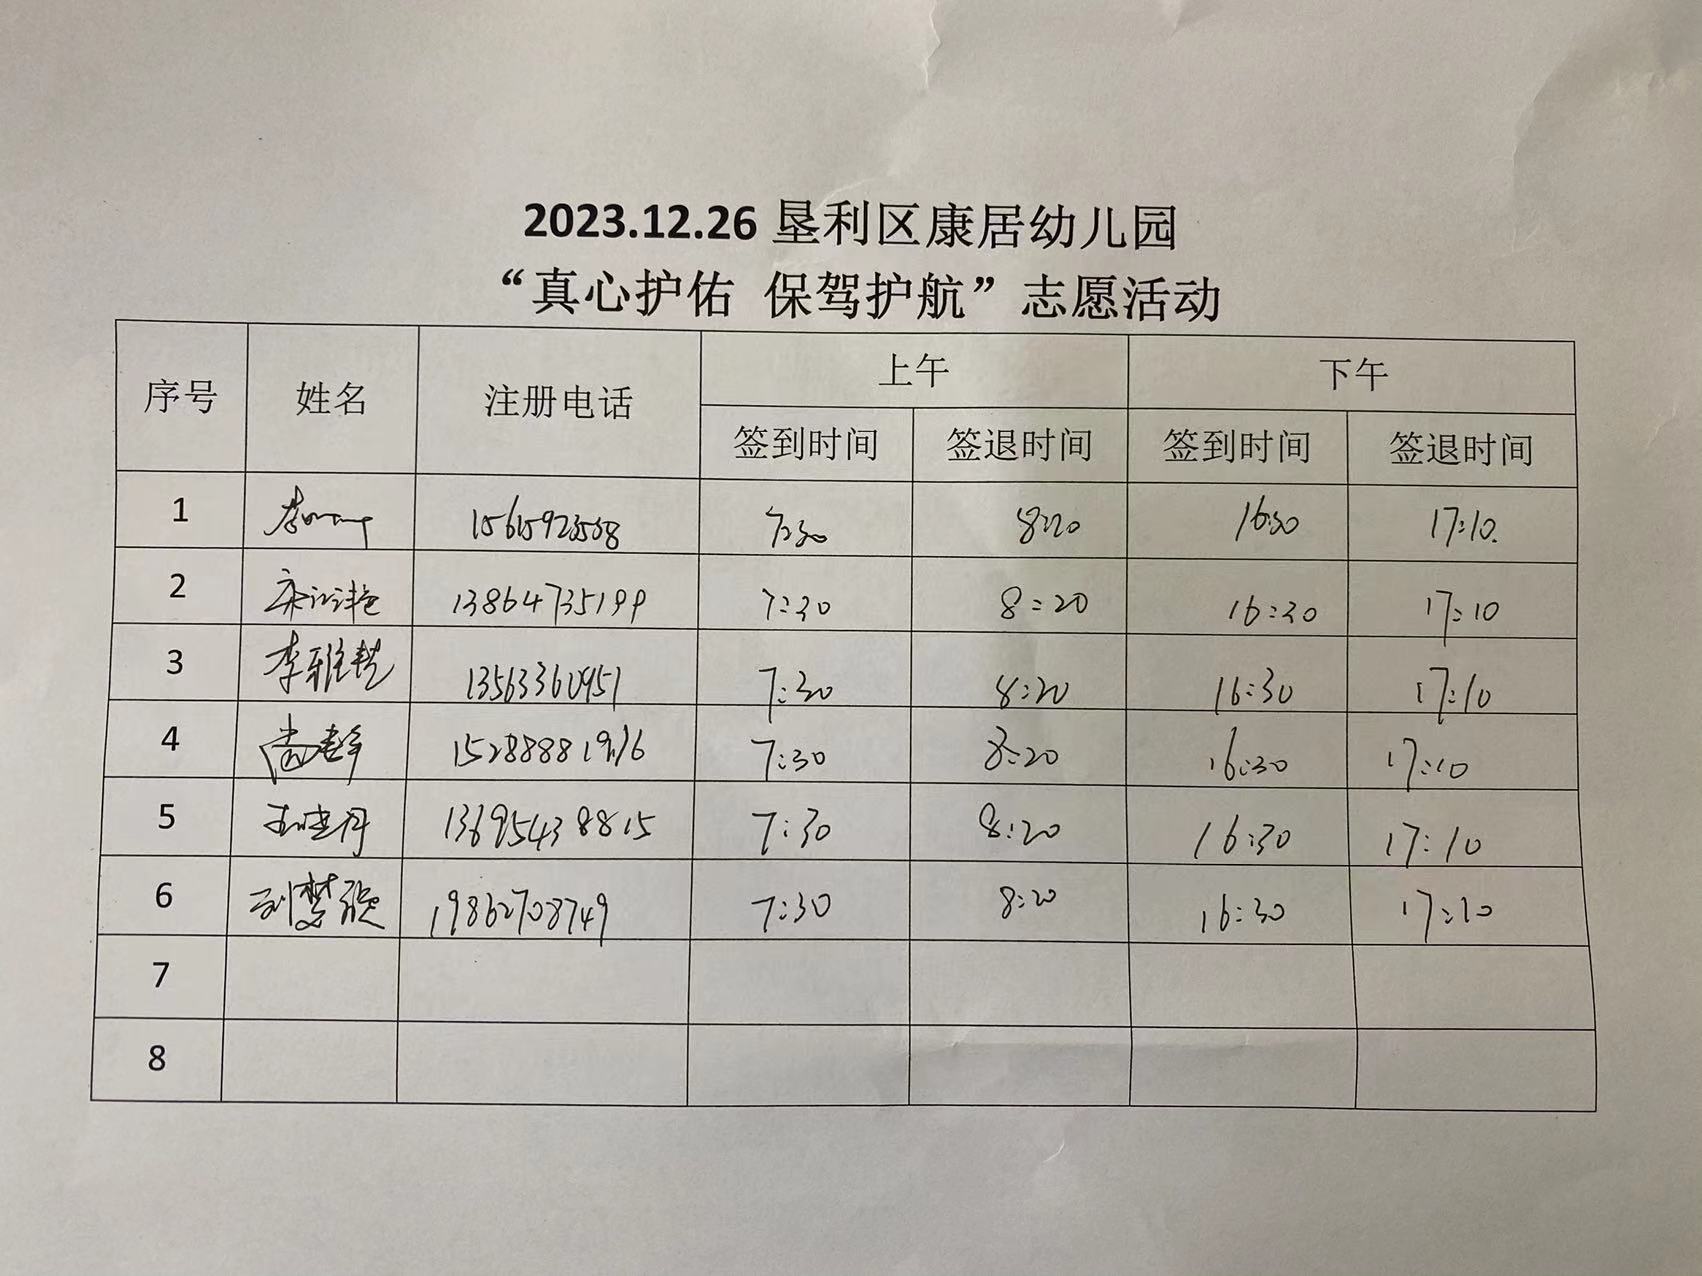 2023.12.26 垦利区康居幼儿园
“真心护佑 保驾护航”志愿活动
序号 姓名 注册电话 上午 下午
签到时间 签退时间 签到时间 签退时间
1 7:30 8:20 16:30 17:10
2 13864735199 7:30 8:20 16:30 17:10
3 李雅艳 13563360951 7:30 8:20 16:30 17:10
4 7:30 8:20 16:30 17:10
5 13695438815 7:30 8:20 16:30 17:10
6 刘梦 19862708749 7:30 8:20 16:30 17:10
7
8